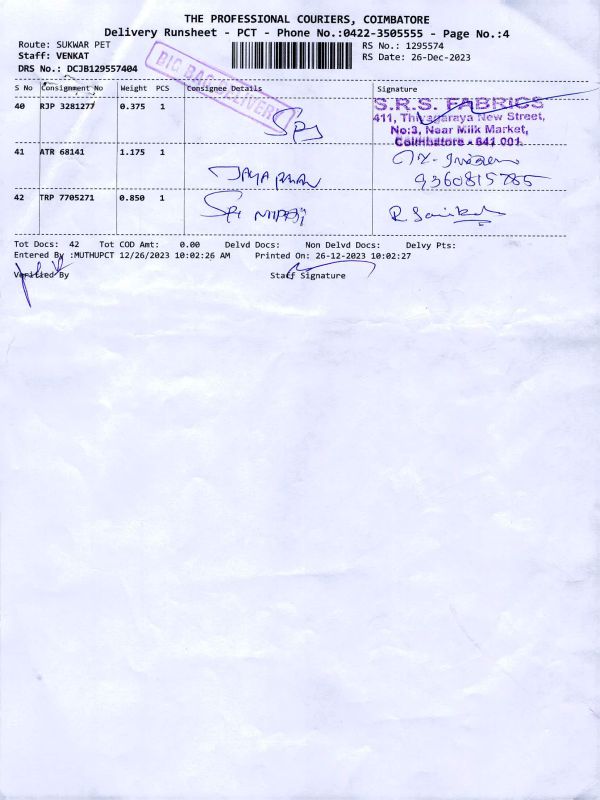 THE PROFESSIONAL COURIERS, COIMBATORE
Delivery Runsheet - PCT - Phone No.:0422-3505555 - Page No.:4
Route: SUKWAR PET
RS No.: 1295574
Staff: VENKAT
RS Date: 26-Dec-2023
DRS No.: DCJB129557404
BIG BAG DELIVERY
S No Consignment No Weight PCS Consignee Details Signature
40 RJP 3281277 0.375 1
S.R.S. FABRICS
411, Thiyagaraya New Street,
No:3, Near Milk Market,
Coimbatore - 641 001.
41 ATR 68141 1.175 1
9360815785
42 TRP 7705271 0.850 1 Sri
Tot Docs: 42 Tot COD Amt: 0.00 Delvd Docs: Non Delvd Docs: Delvy Pts:
Entered By :MUTHUPCT 12/26/2023 10:02:26 AM Printed On: 26-12-2023 10:02:27
Verified By Staff Signature